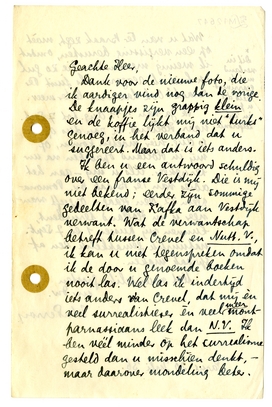 Geachte Heer,
Dank voor de nieuwe foto, die
ik aardiger vind nog dan de vorige.
De knaapjes zijn grappig klein
en de koffie lijkt mij niet "turks"
genoeg, in het verband dat u
suggereert. Maar dat is iets anders.
Ik ben u een antwoord schuldig
over een franse Vestdijk. Die is mij
niet bekend; eerder zijn sommige
gedeelten van Kafka aan Vestdijk
verwant. Wat de verwantschap
betreft tussen Crevel en Nutt. V.,
ik kan u niet tegenspreken omdat
ik de door u genoemde boeken
nooit las. Wel las ik indertijd
iets anders van Crevel, dat mij en
veel surrealistischer en veel meer mont-
parnassiaans leek dan N.V. Ik
ben veel minder op het surrealisme
gesteld dan u misschien denkt, –
maar daarover mondeling beter.